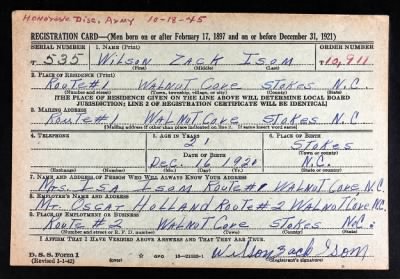 Honorable Disc, Army 10-18-45
REGISTRATION CARD—(Men born on or after February 17, 1897 and on or before December 31, 1921)
SERIAL NUMBER 1. NAME (Print) ORDER NUMBER
T 535 Wilson Zack Isom T10,911
(First) (Middle) (Last)
2. PLACE OF RESIDENCE (Print)
Route#1 Walnut Cove Stokes N.C.
(Number and street) (Town, township, village, or city) (County) (State)
[THE PLACE OF RESIDENCE GIVEN ON THE LINE ABOVE WILL DETERMINE LOCAL BOARD
JURISDICTION; LINE 2 OF REGISTRATION CERTIFICATE WILL BE IDENTICAL]
3. MAILING ADDRESS
Route#1 Walnut Cove Stokes N.C.
[Mailing address if other than place indicated on line 2. If same insert word same]
4. TELEPHONE 5. AGE IN YEARS 6. PLACE OF BIRTH
21 Stokes
DATE OF BIRTH (Town or county)
Dec. 16 1920 N.C.
(Exchange) (Number) (Mo.) (Day) (Yr.) (State or country)
7. NAME AND ADDRESS OF PERSON WHO WILL ALWAYS KNOW YOUR ADDRESS
Mrs. Isa Isom Route#1 Walnut Cove, N.C.
8. EMPLOYER'S NAME AND ADDRESS
Mr. Oscar Holland Route#2 Walnut Cove N.C.
9. PLACE OF EMPLOYMENT OR BUSINESS
Route #2 Walnut Cove Stokes N.C.
(Number and street or R. F. D. number) (Town) (County) (State)
I AFFIRM THAT I HAVE VERIFIED ABOVE ANSWERS AND THAT THEY ARE TRUE.
D. S. S. Form 1
(Revised 1-1-42) (over) GPO 16—21630-1 Wilson Zack Isom
(Registrant's signature)